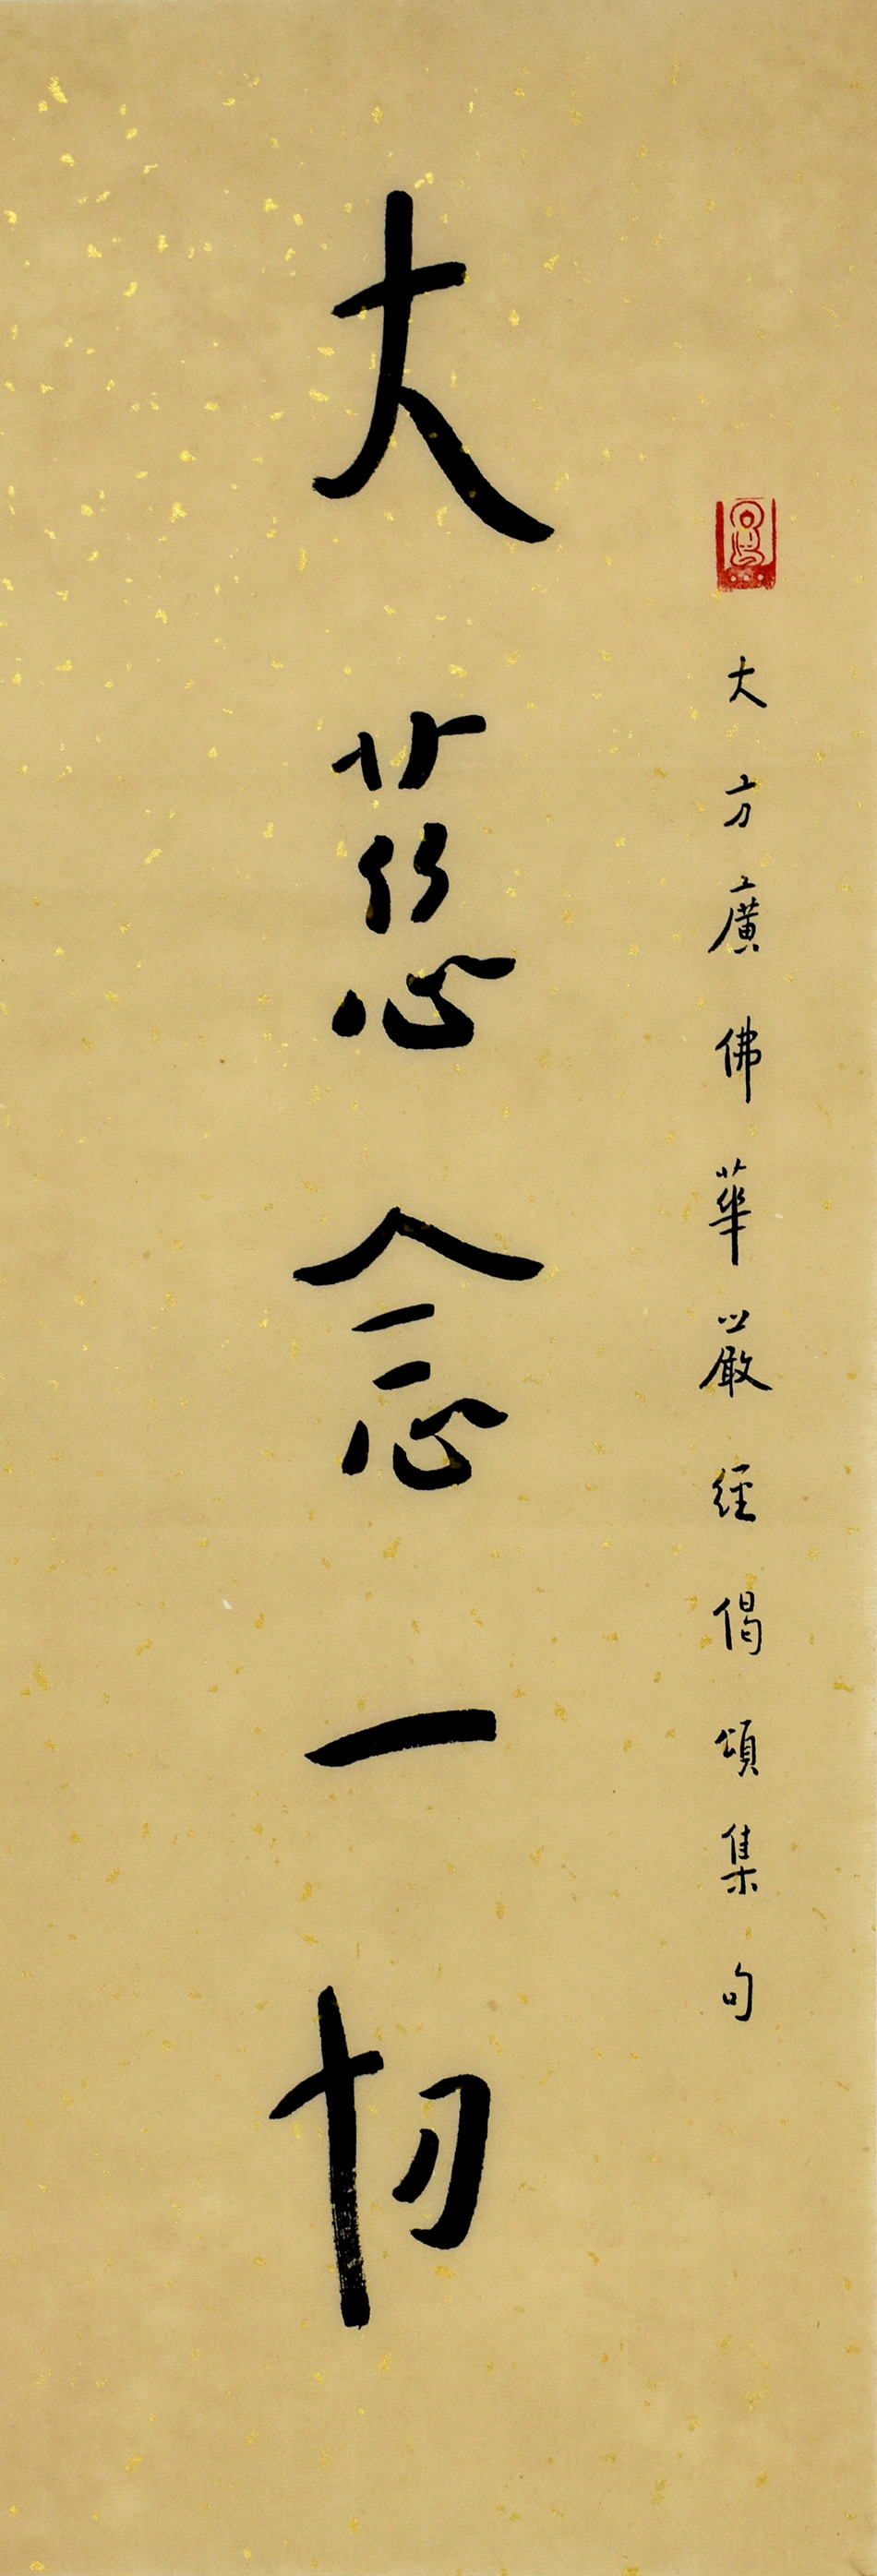 大方廣佛華嚴經偈頌集句
大慈念一切